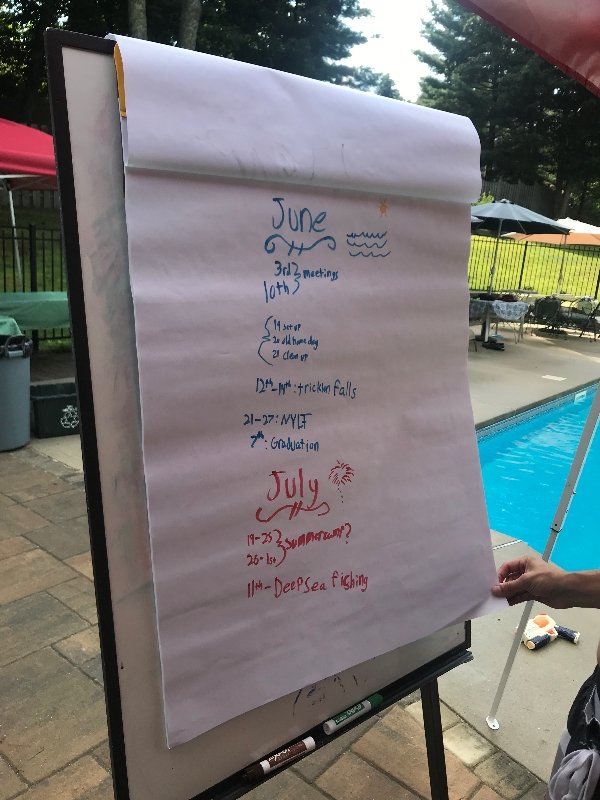 June
3rd
10th
meetings
19 set up
20 old home day
21 clean up
12th-14th: tricklin falls
21-27: NYLT
7th: Graduation
July
19-25
26-1st
summercamp?
11th - Deep sea fishing
EXPO